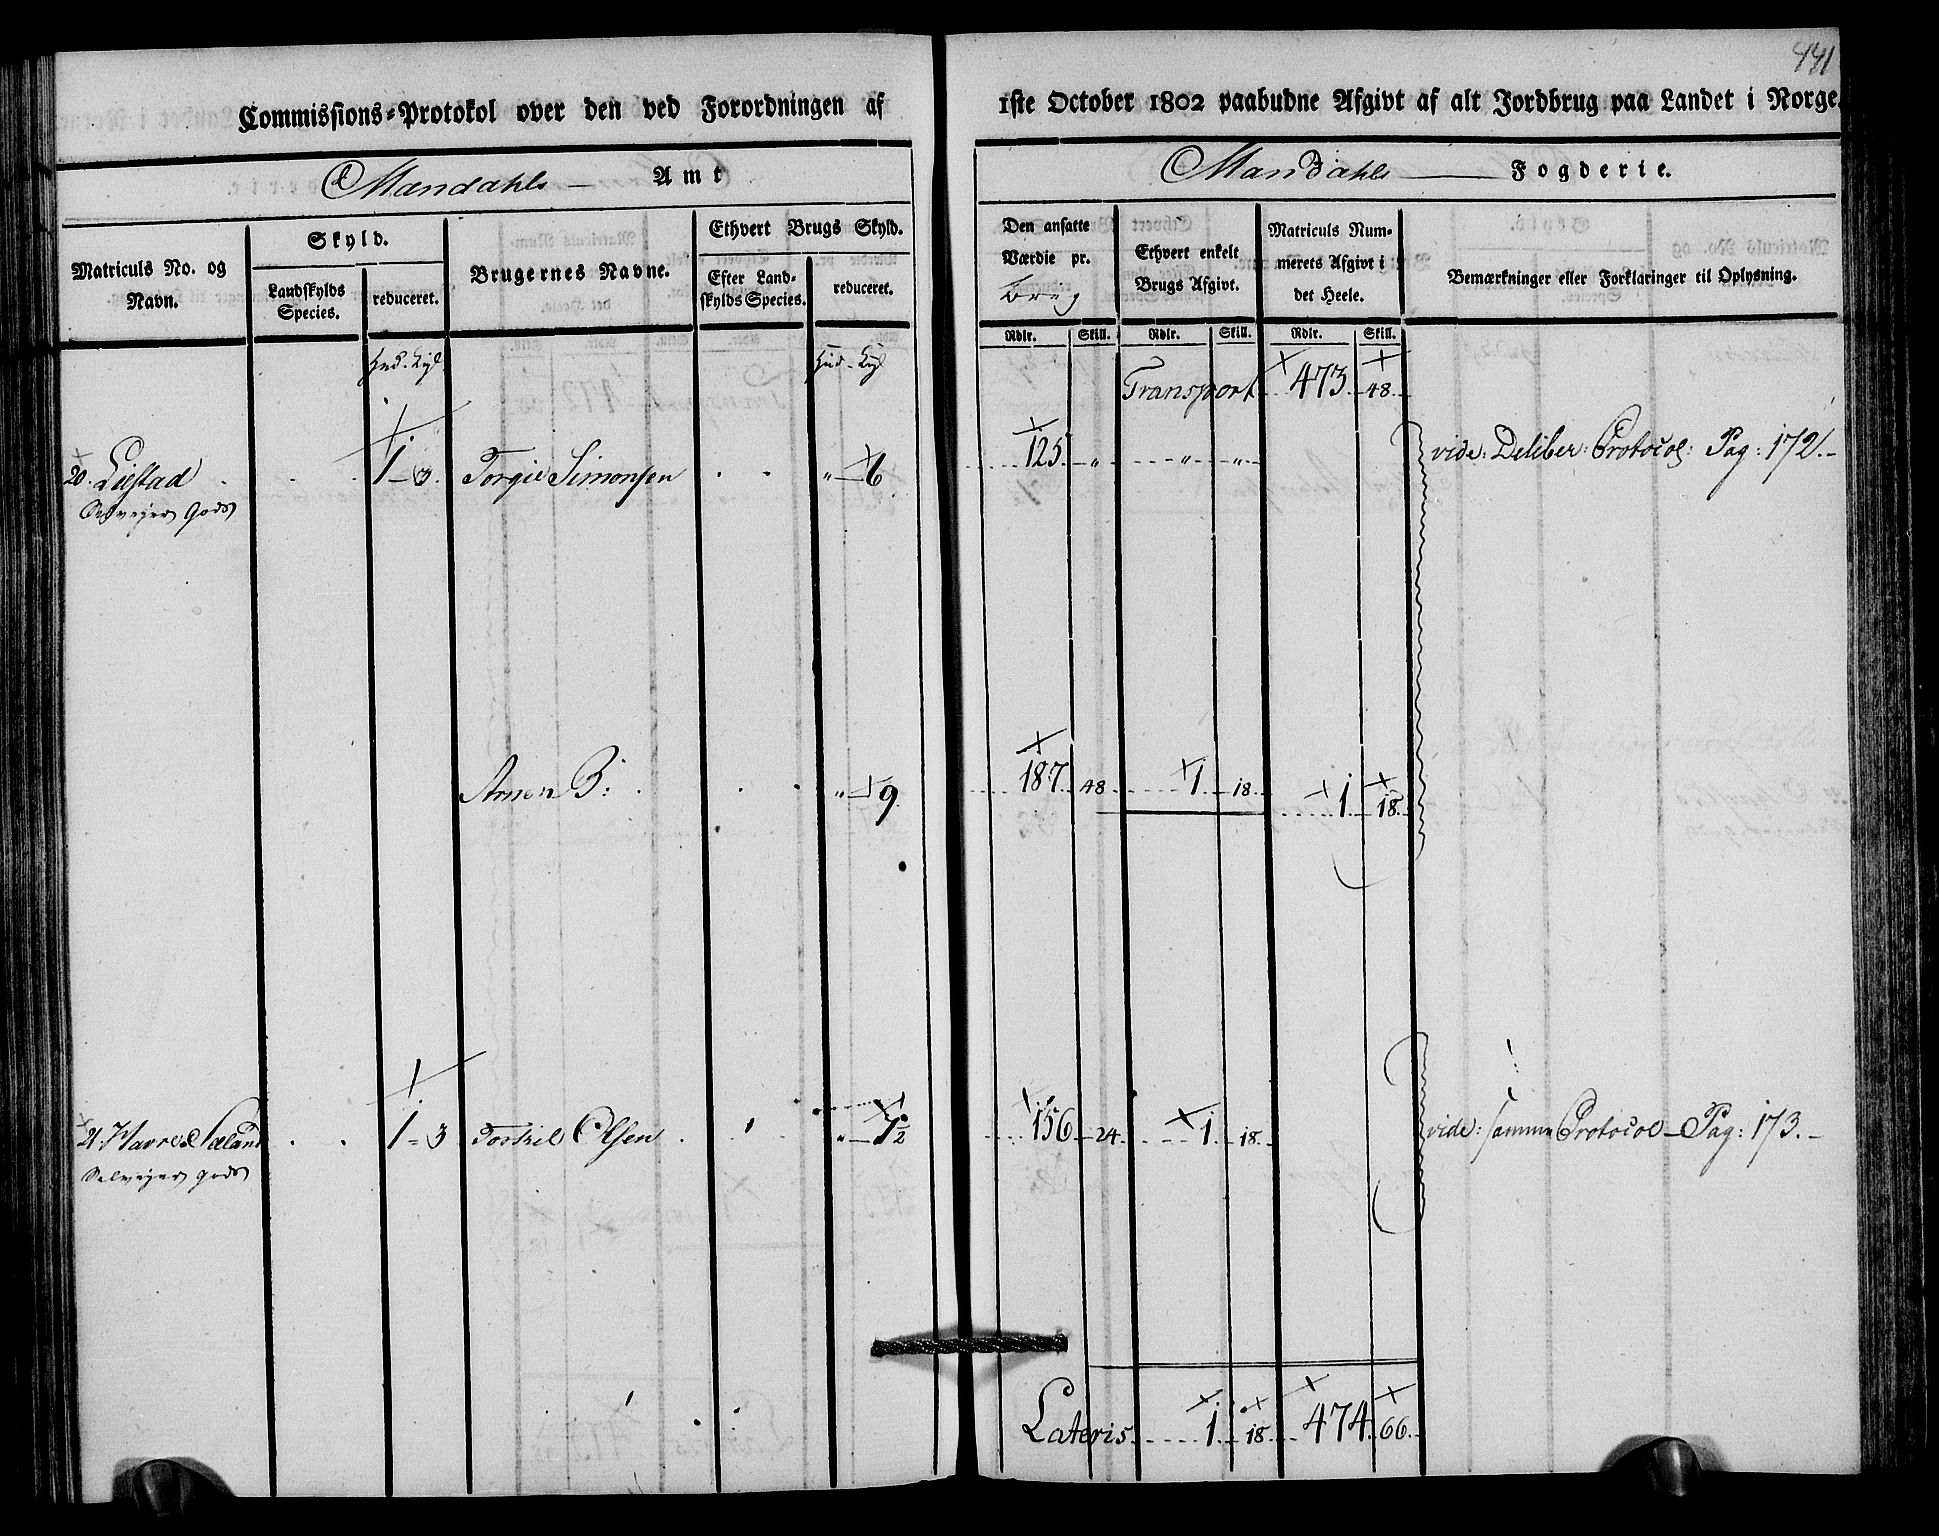 441
Commissions-Protokol over den ved Forordningen af 1ste October 1802 paabudne Afgivt af alt Jordbrug paa Landet i Norge.
Mandahls Amt
Mandahls Fogderie.
Matriculs No. og Navn.
Skyld.
Landskylds Species.
reduceret.
Brugernes Navne.
Ethvert Brugs Skyld.
Efter Landskylds Species.
reduceret.
Den ansatte Værdie pr. Brug
Ethvert enkelt Brugs Afgivt.
Matriculs Nummerets Afgivt i det Heele.
Bemærkninger eller Forklaringer til Oplysning.
Rdlr. Skill. Rdlr. Skill. Rdlr. Skill.
Transport 473 48
20. Liestad 1 - 3. Torgie Simonsen " - 6 125 " " " vide: Deliber: Protocol: Pag: 172. -
Selvejer Gods
Arne B: " - 9 187 48 1 18 1 18
21. 1 - 3 Torkel Olsen " - 7½ 156 24 1 18 vide: samme Protocol - Pag: 173. -
Selvejer gods
Lateris 1 18 474 66